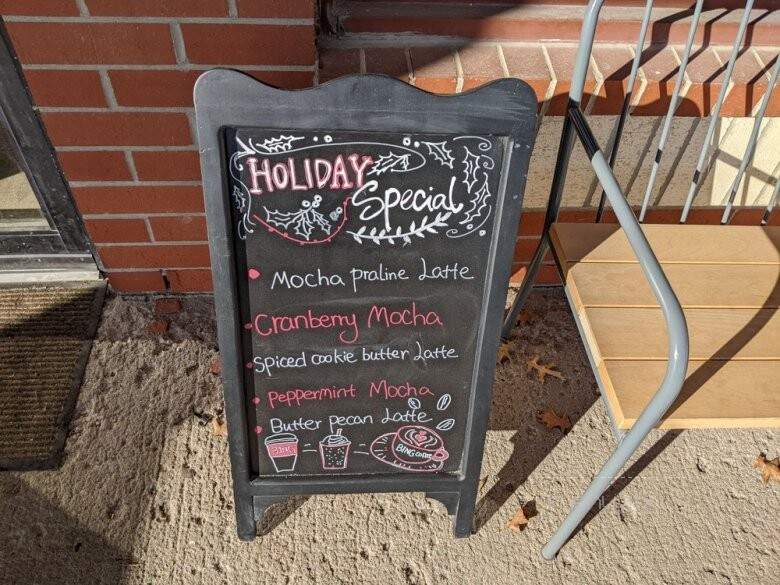 HOLIDAY
Special
Mocha praline Latte
Cranberry Mocha
Spiced cookie butter Latte
Peppermint Mocha
Butter pecan Latte
BING
BING COFFEE